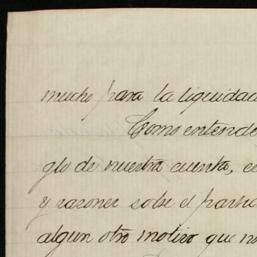 mucho para la liquidac
Como entende
glo de nuestra cuenta, e
y razones sobe el partic
algun otro motivo que no